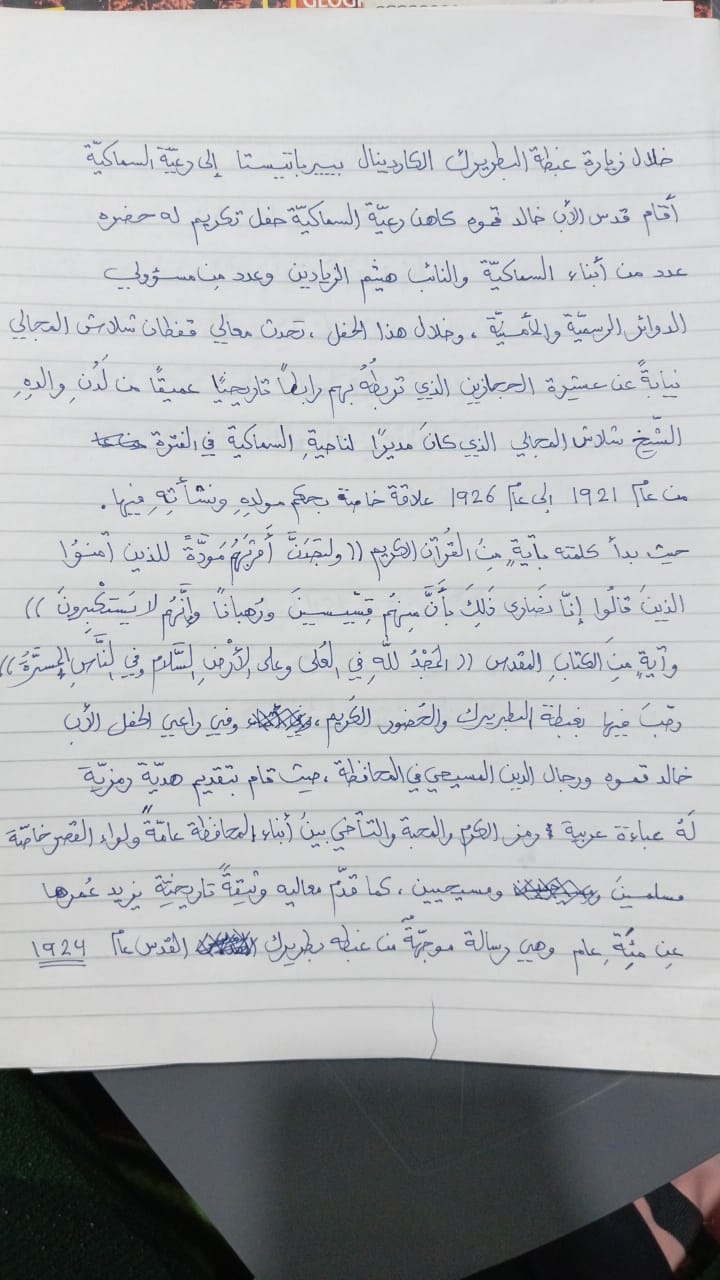 GLOGI
خلال زيارة غبطة البطريرك الكاردينال بييرباتيستا إلى رعيّة السماكيّة
أقام قدس الأب خالد قموه كاهن رعيّة السماكيّة حفل تكريم له حضره
عدد من أبناء السماكيّة والنائب هيثم الزيادين وعدد من مسؤولي
الدوائر الرسميّة والأمنيّة ، وخلال هذا الحفل ، تحدث معالي قفطان شلاش المجالي
نيابةً عن عشيرة الحجازين الذي تربطُهُ بهم رابطاً تاريخيًا عميقًا من لَدُنِ والدِهِ
الشّيخ شلاش المجالي الذي كانَ مديرًا لناحيةِ السماكية في الفترة
من عام 1921 إلى عام 1926 علاقة خاصة بحكم مولدِهِ ونشأتِهِ فيها .
حيث بدأ كلمته بآيةٍ مِنَ القُرآن الكريم (( ولتجدَنَّ أَقربَهُم مَودّةً للذين آمنوُا
الذينَ قالُوا إنّا نصَارى ذَلِكَ بأَنَّ مِنهُم قِسّيسينَ ورُهباناً وإنَّهُم لا يَستَكْبِرونَ ))
وآيةٍ مِنَ الكتابِ المقدس (( المَجْدُ للّهِ في العُلى وعلى الأرْضِ السَّلام وفي النَّاسِ المسرَّةُ ))
رحّبَ فيها بغبطة البطريرك والحُضور الكَريم ، وفي راعي الحفل الأب
خالد قموه ورجال الدين المسيحي في المحافظة ، حيث قام بتقديم هديّة رمزيّة
لَهُ عباءة عربية رمز الكرم والمحبة والتآخي بينَ أبناء المحافظة عامّةً ولواء القصر خاصّة
مسلمينَ ومسيحيين ، كما قدّم معاليه وثيقةً تاريخيّة يزيد عُمرها
عن مئِة عام وهي رسالة موجّهةٌ من غبطة بطريرك القدس عام ١٩٢٤